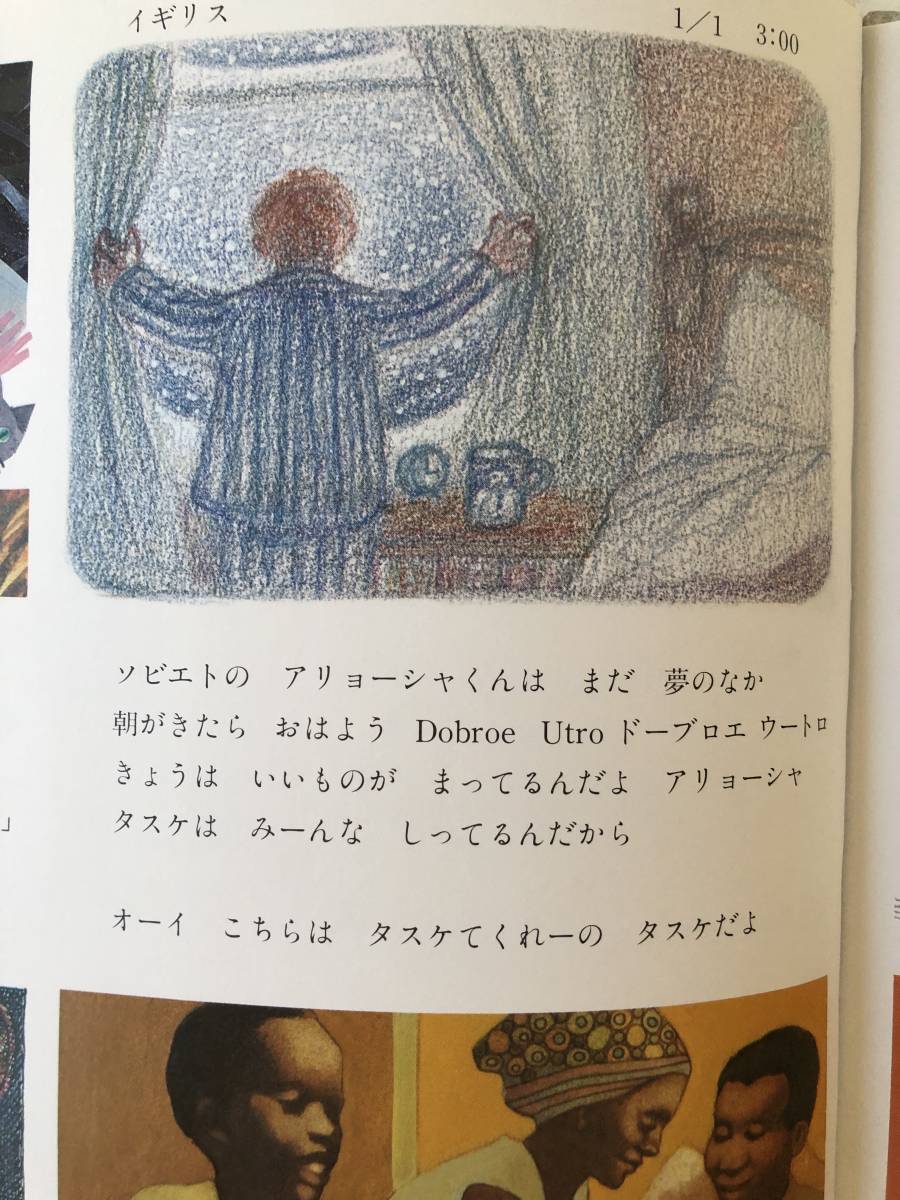 イギリス
1/1 3:00
ソビエトの アリョーシャくんは まだ 夢のなか
朝がきたら おはよう Dobroe Utro ドーブロエ ウートロ
きょうは いいものが まってるんだよ アリョーシャ
タスケは みーんな しってるんだから
」
オーイ こちらは タスケてくれーの タスケだよ